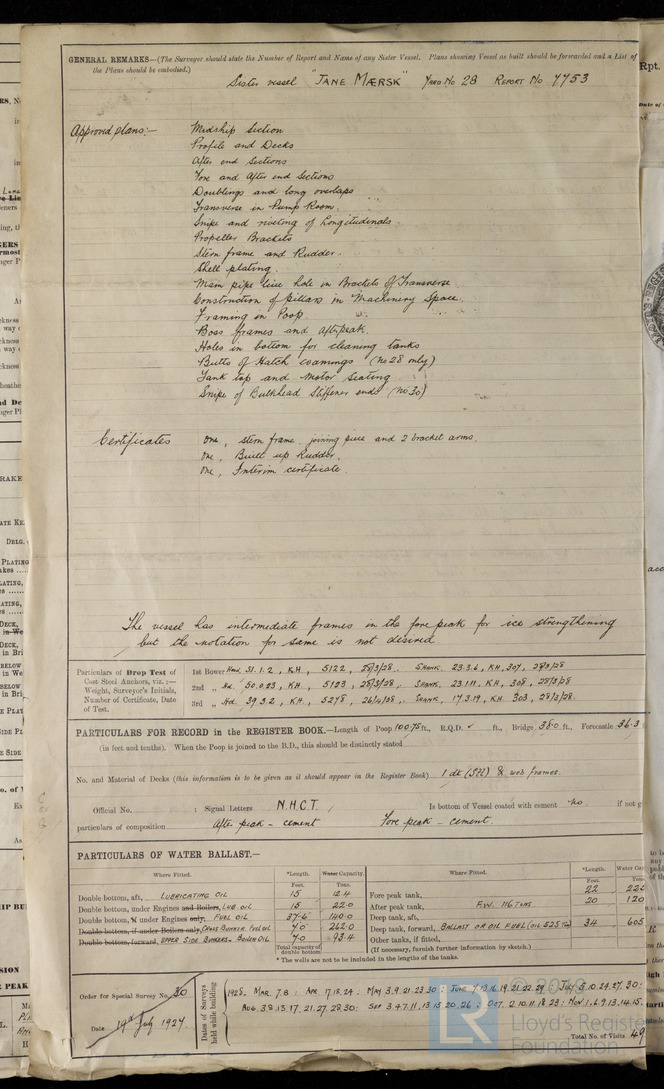 GENERAL REMARKS—(The Surveyor should state the Number of Report and Name of any Sister Vessel. Plans showing Vessel as built should be forwarded and a List of
the Plans should be embodied.)
Sister vessel "JANE MÆRSK" YARD No 28 REPORT No 7753
Approved plans:-
Midship Section
Profile and Decks
After end Sections
Fore and After end Sections
Doublings and long overlaps
Transverse in Pump Room.
Snipe and riveting of Longitudinals
Propeller Brackets
Stern frame and Rudder.
Shell plating.
Main pipe line hole in Brackets of Transverse.
Construction of pillars in Machinery Space.
Framing in Poop
Boss frames and afterpeak.
Holes in bottom for cleaning tanks
Butts of Hatch coamings (No 28 only)
Tank top and Motor Seating
Snipe of Bulkhead Stiffener ends (No 30)
Certificates
One, stern frame. joining piece and 2 bracket arms.
One, Built up Rudder.
One, Interim certificate.
The vessel has intermediate frames in the fore peak for ice strengthening
but the notation for same is not desired.
Particulars of Drop Test of
Cast Steel Anchors, viz.:—
Weight, Surveyor's Initials,
Number of Certificate, Date
of Test.
1st Bower Head. 31.1.2, K.H, 5122, 28/3/28. SHANK. 23.3.6, K.H, 307, 28/3/28
2nd „ Hd. 50.0.23, K.H, 5123, 28/3/28, SHANK. 23.1.11, K.H, 308, 28/3/28
3rd „ Hd. 39.3.2, K.H, 5278, 26/4/28, SHANK. 17.3.19, K.H. 303, 28/3/28.
PARTICULARS FOR RECORD in the REGISTER BOOK.—Length of Poop 100.75 ft., R.Q.D. ft., Bridge 38.0 ft., Forecastle 36.3
(in feet and tenths). When the Poop is joined to the B.D., this should be distinctly stated
No. and Material of Decks (this information is to be given as it should appear in the Register Book) 1 dk (Stl) & web frames.
Official No. ; Signal Letters N.H.C.T. Is bottom of Vessel coated with cement No. if not g
particulars of composition After peak - cement Fore peak - cement.
PARTICULARS OF WATER BALLAST.—
Where Fitted. *Length. Water Capacity. Where Fitted. *Length. Water Cap
Feet. Tons. Feet. Tons
Double bottom, aft, LUBRICATING OIL 15 12.4
Double bottom, under Engines and Boilers, LUB OIL 15 22.0
Double bottom, if under Engines only, FUEL OIL 37.6 140.0
Double bottom, if under Boilers only, CROSS BUNKER FUEL OIL 4.0 262.0
Double bottom, forward, UPPER SIDE BUNKERS - BOILER OIL 7.0 93.4
Total capacity of double bottom
Fore peak tank, 22
After peak tank, F.W. 116 TONS 20 120
Deep tank, aft,
Deep tank, forward, BALLAST OR OIL FUEL (OIL 525 Ts) 34 605
Other tanks, if fitted,
(If necessary, furnish further information by sketch.)
* The wells are not to be included in the lengths of the tanks.
Order for Special Survey No. 30
Date 19th July 1927
Dates of Surveys held while building
1928. MAR. 7.8: APR 17.18.24: MAY 3.9.21.23.30: JUNE 7.13.16.19.21.22.29: JULY 5.10.24.27.30:
AUG. 3.9.13.17.21.27.28.30: SEP 3.4.7.11.13.15.20.26: OCT. 2.10.11.18.23: NOV. 1.6.9.13.14.15.
Total No. of Visits 49
© 2020
LR
Lloyd's Register
Foundation
Rpt.